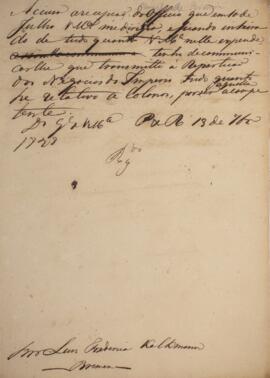 Accuso a recepção do Officio que em 10 de
Julho V. Mce me dirigio, e ficando inteira
do de tudo quanto V. Mce nelle expende
tenho de communi
car lhe que transmetti á Repartição
dos Negocios do Imperio tudo quanto
he relativo a Colonos, por ser a compe
tente.
Ds Gde a V. Mce P. do R. 13 de 7bro
1827
Snr Luis Frederico Kalkmann
Bremen